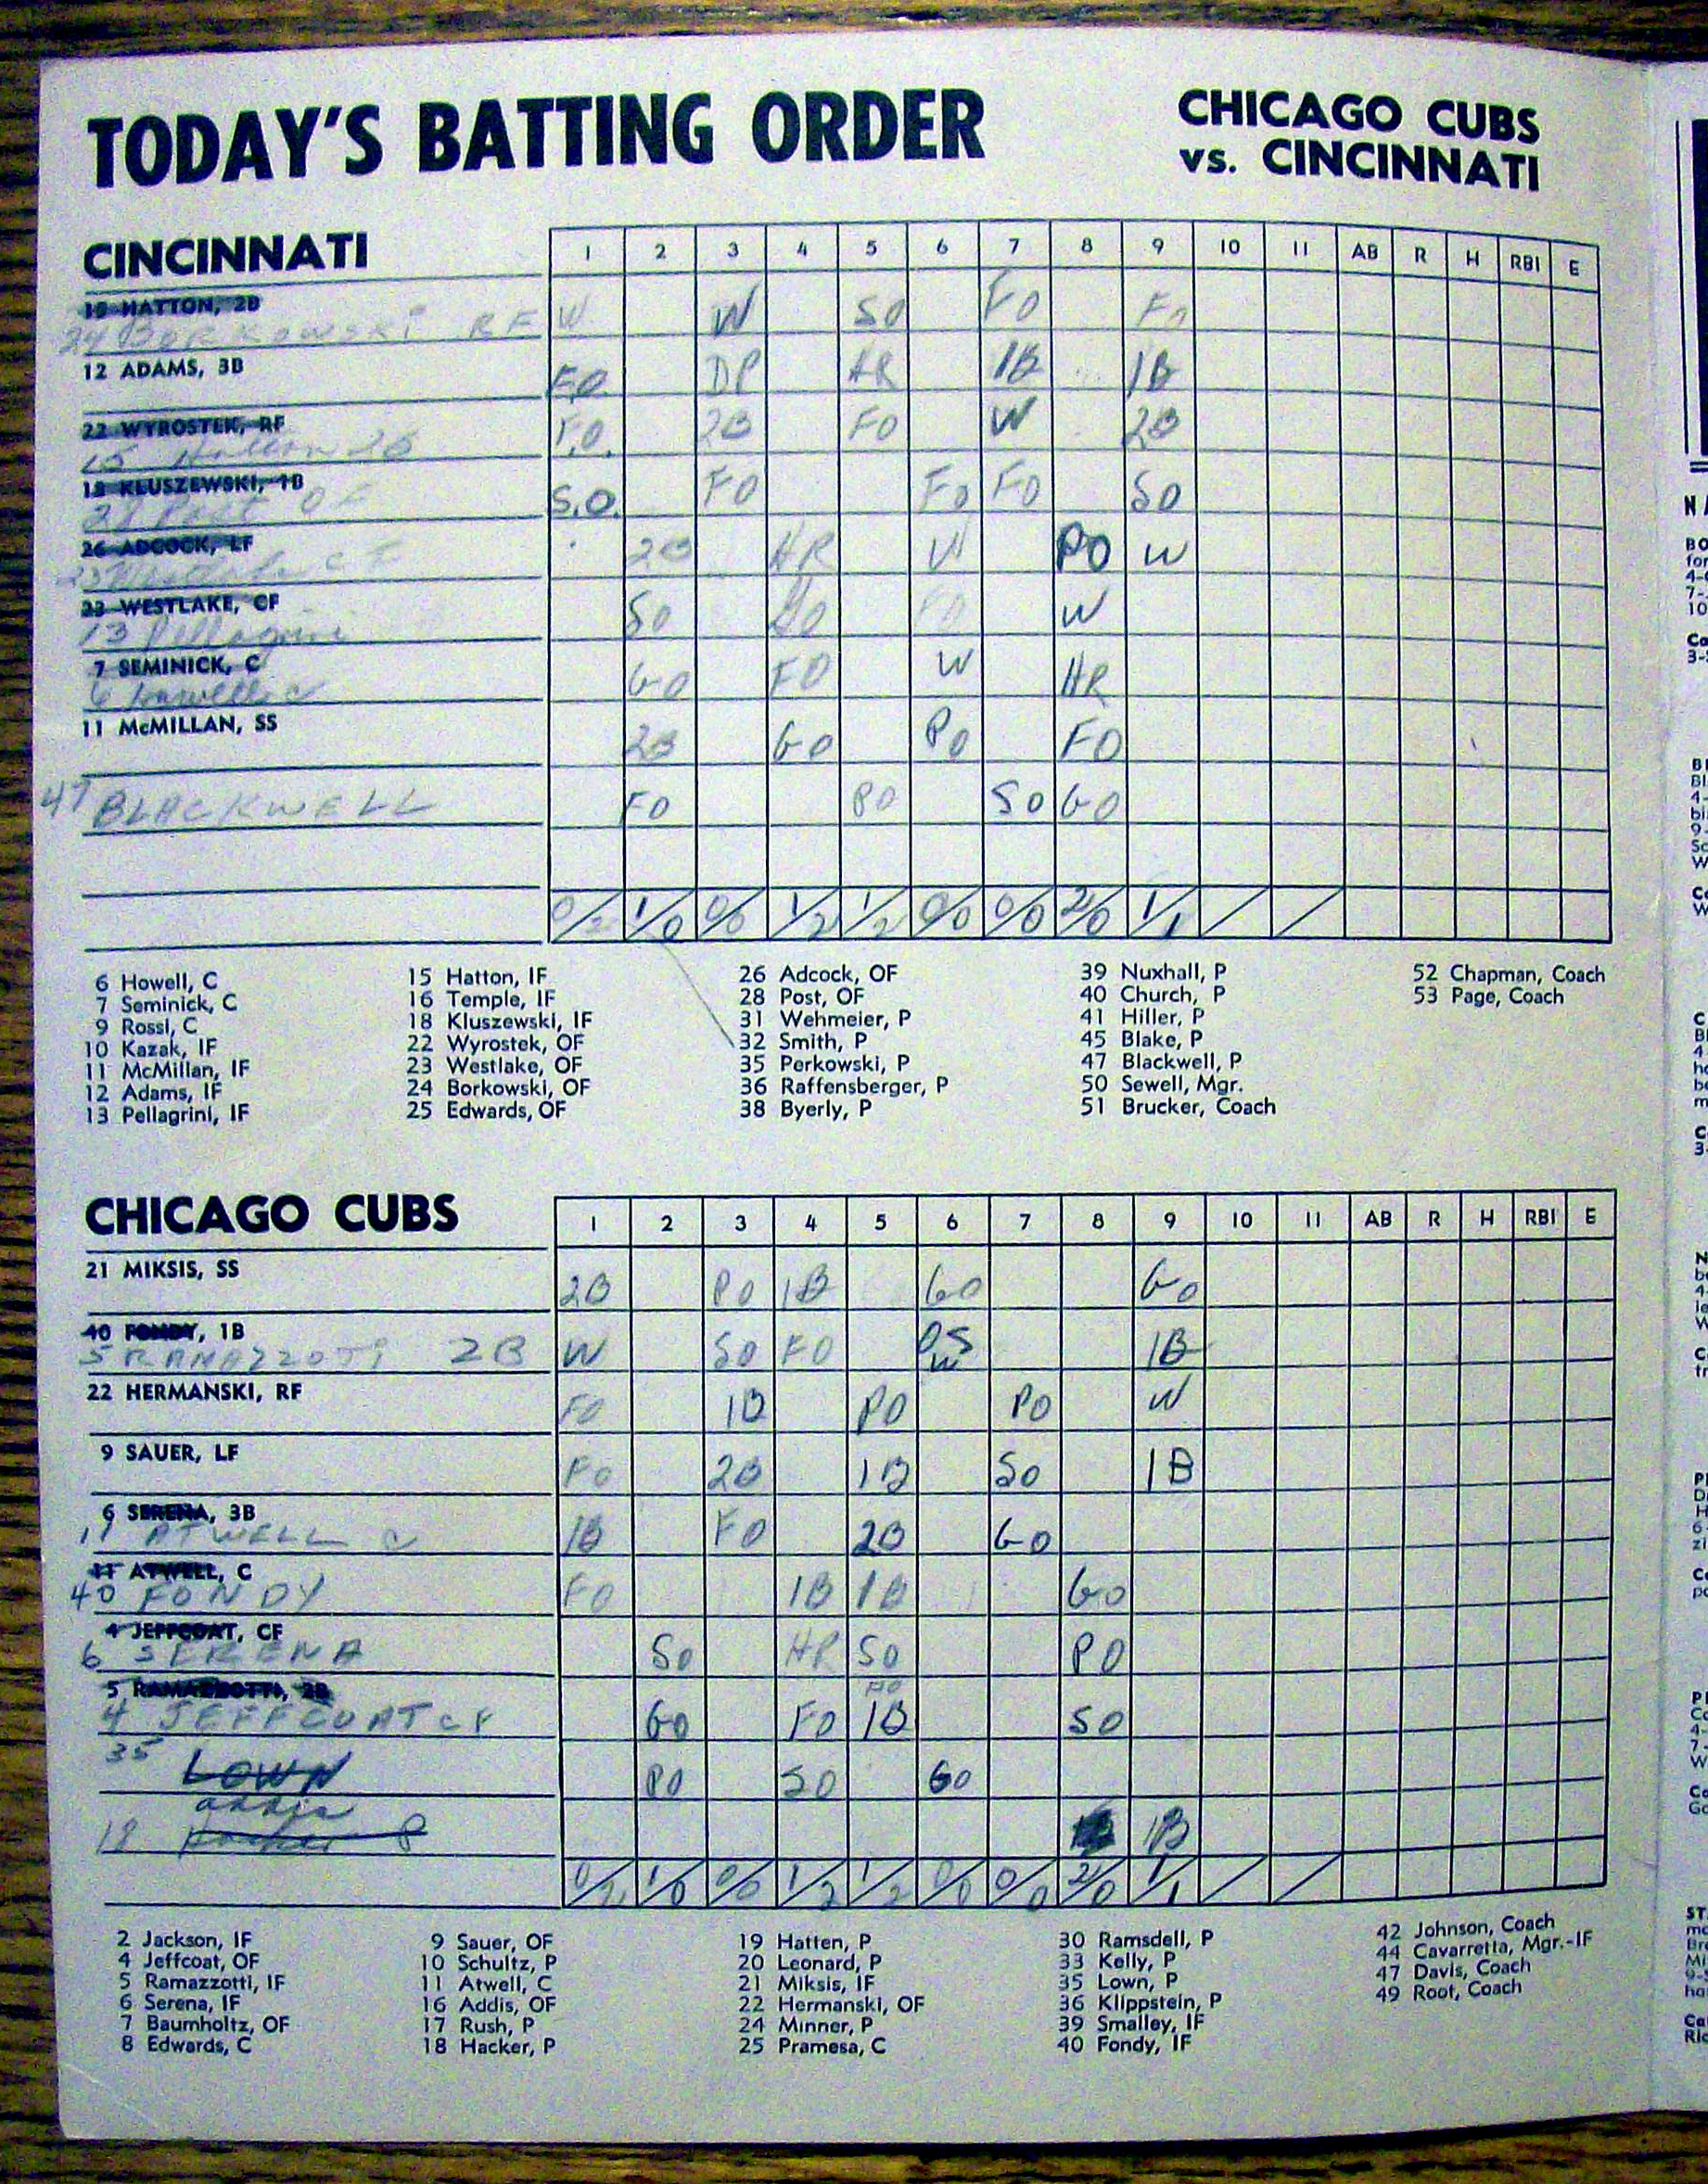 TODAY'S BATTING ORDER
CHICAGO CUBS
vs. CINCINNATI
CINCINNATI 1 2 3 4 5 6 7 8 9 10 11 AB R H RBI E
15 HATTON, 2B
24 BORKOWSKI RF W W SO FO FO
12 ADAMS, 3B FO DP HR 1B 1B
22 WYROSTEK, RF
15 Hatton 2B F.O. 2B FO W 2B
18 KLUSZEWSKI, 1B
28 Post OF S.O. FO FO FO SO
26 ADCOCK, LF
23 Westlake CF 2B HR W PO W
23 WESTLAKE, CF
13 Pellagrini SO GO FO W
7 SEMINICK, C
6 Howell C GO FO W HR
11 McMILLAN, SS 2B GO PO FO
47 BLACKWELL FO PO SO GO
0/2 1/0 0/0 1/2 1/2 0/0 0/0 2/0 1/1
6 Howell, C
7 Seminick, C
9 Rossi, C
10 Kazak, IF
11 McMillan, IF
12 Adams, IF
13 Pellagrini, IF
15 Hatton, IF
16 Temple, IF
18 Kluszewski, IF
22 Wyrostek, OF
23 Westlake, OF
24 Borkowski, OF
25 Edwards, OF
26 Adcock, OF
28 Post, OF
31 Wehmeier, P
32 Smith, P
35 Perkowski, P
36 Raffensberger, P
38 Byerly, P
39 Nuxhall, P
40 Church, P
41 Hiller, P
45 Blake, P
47 Blackwell, P
50 Sewell, Mgr.
51 Brucker, Coach
52 Chapman, Coach
53 Page, Coach
CHICAGO CUBS 1 2 3 4 5 6 7 8 9 10 11 AB R H RBI E
21 MIKSIS, SS 2B PO 1B GO GO
40 FONDY, 1B
5 RAMAZZOTTI 2B W SO FO W 1B
22 HERMANSKI, RF FO 1B PO PO W
9 SAUER, LF FO 2B 1B SO 1B
6 SERENA, 3B
11 ATWELL C 1B FO 2B GO
11 ATWELL, C
40 FONDY FO 1B 1B GO
4 JEFFCOAT, CF
6 SERENA SO HR SO PO
5 RAMAZZOTTI, 2B
4 JEFFCOAT CF GO FO 1B SO
35 LOWN PO SO GO
addis
18 Hacker P 1B
0/2 1/0 0/0 1/2 1/2 0/0 0/0 2/0 1/1
2 Jackson, IF
4 Jeffcoat, OF
5 Ramazzotti, IF
6 Serena, IF
7 Baumholtz, OF
8 Edwards, C
9 Sauer, OF
10 Schultz, P
11 Atwell, C
16 Addis, OF
17 Rush, P
18 Hacker, P
19 Hatten, P
20 Leonard, P
21 Miksis, IF
22 Hermanski, OF
24 Minner, P
25 Pramesa, C
30 Ramsdell, P
33 Kelly, P
35 Lown, P
36 Klippstein, P
39 Smalley, IF
40 Fondy, IF
42 Johnson, Coach
44 Cavarretta, Mgr.-IF
47 Davis, Coach
49 Root, Coach